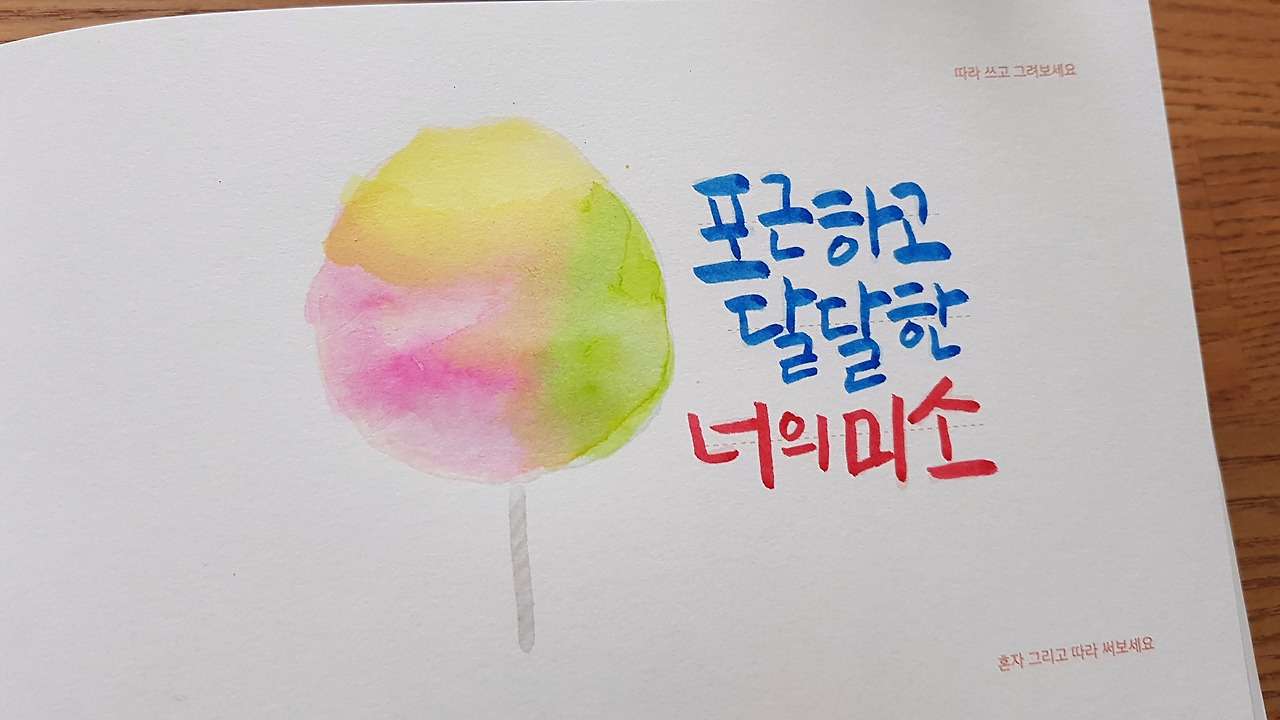 따라 쓰고 그려보세요
포근하고
달달한
너의 미소
혼자 그리고 따라 써보세요